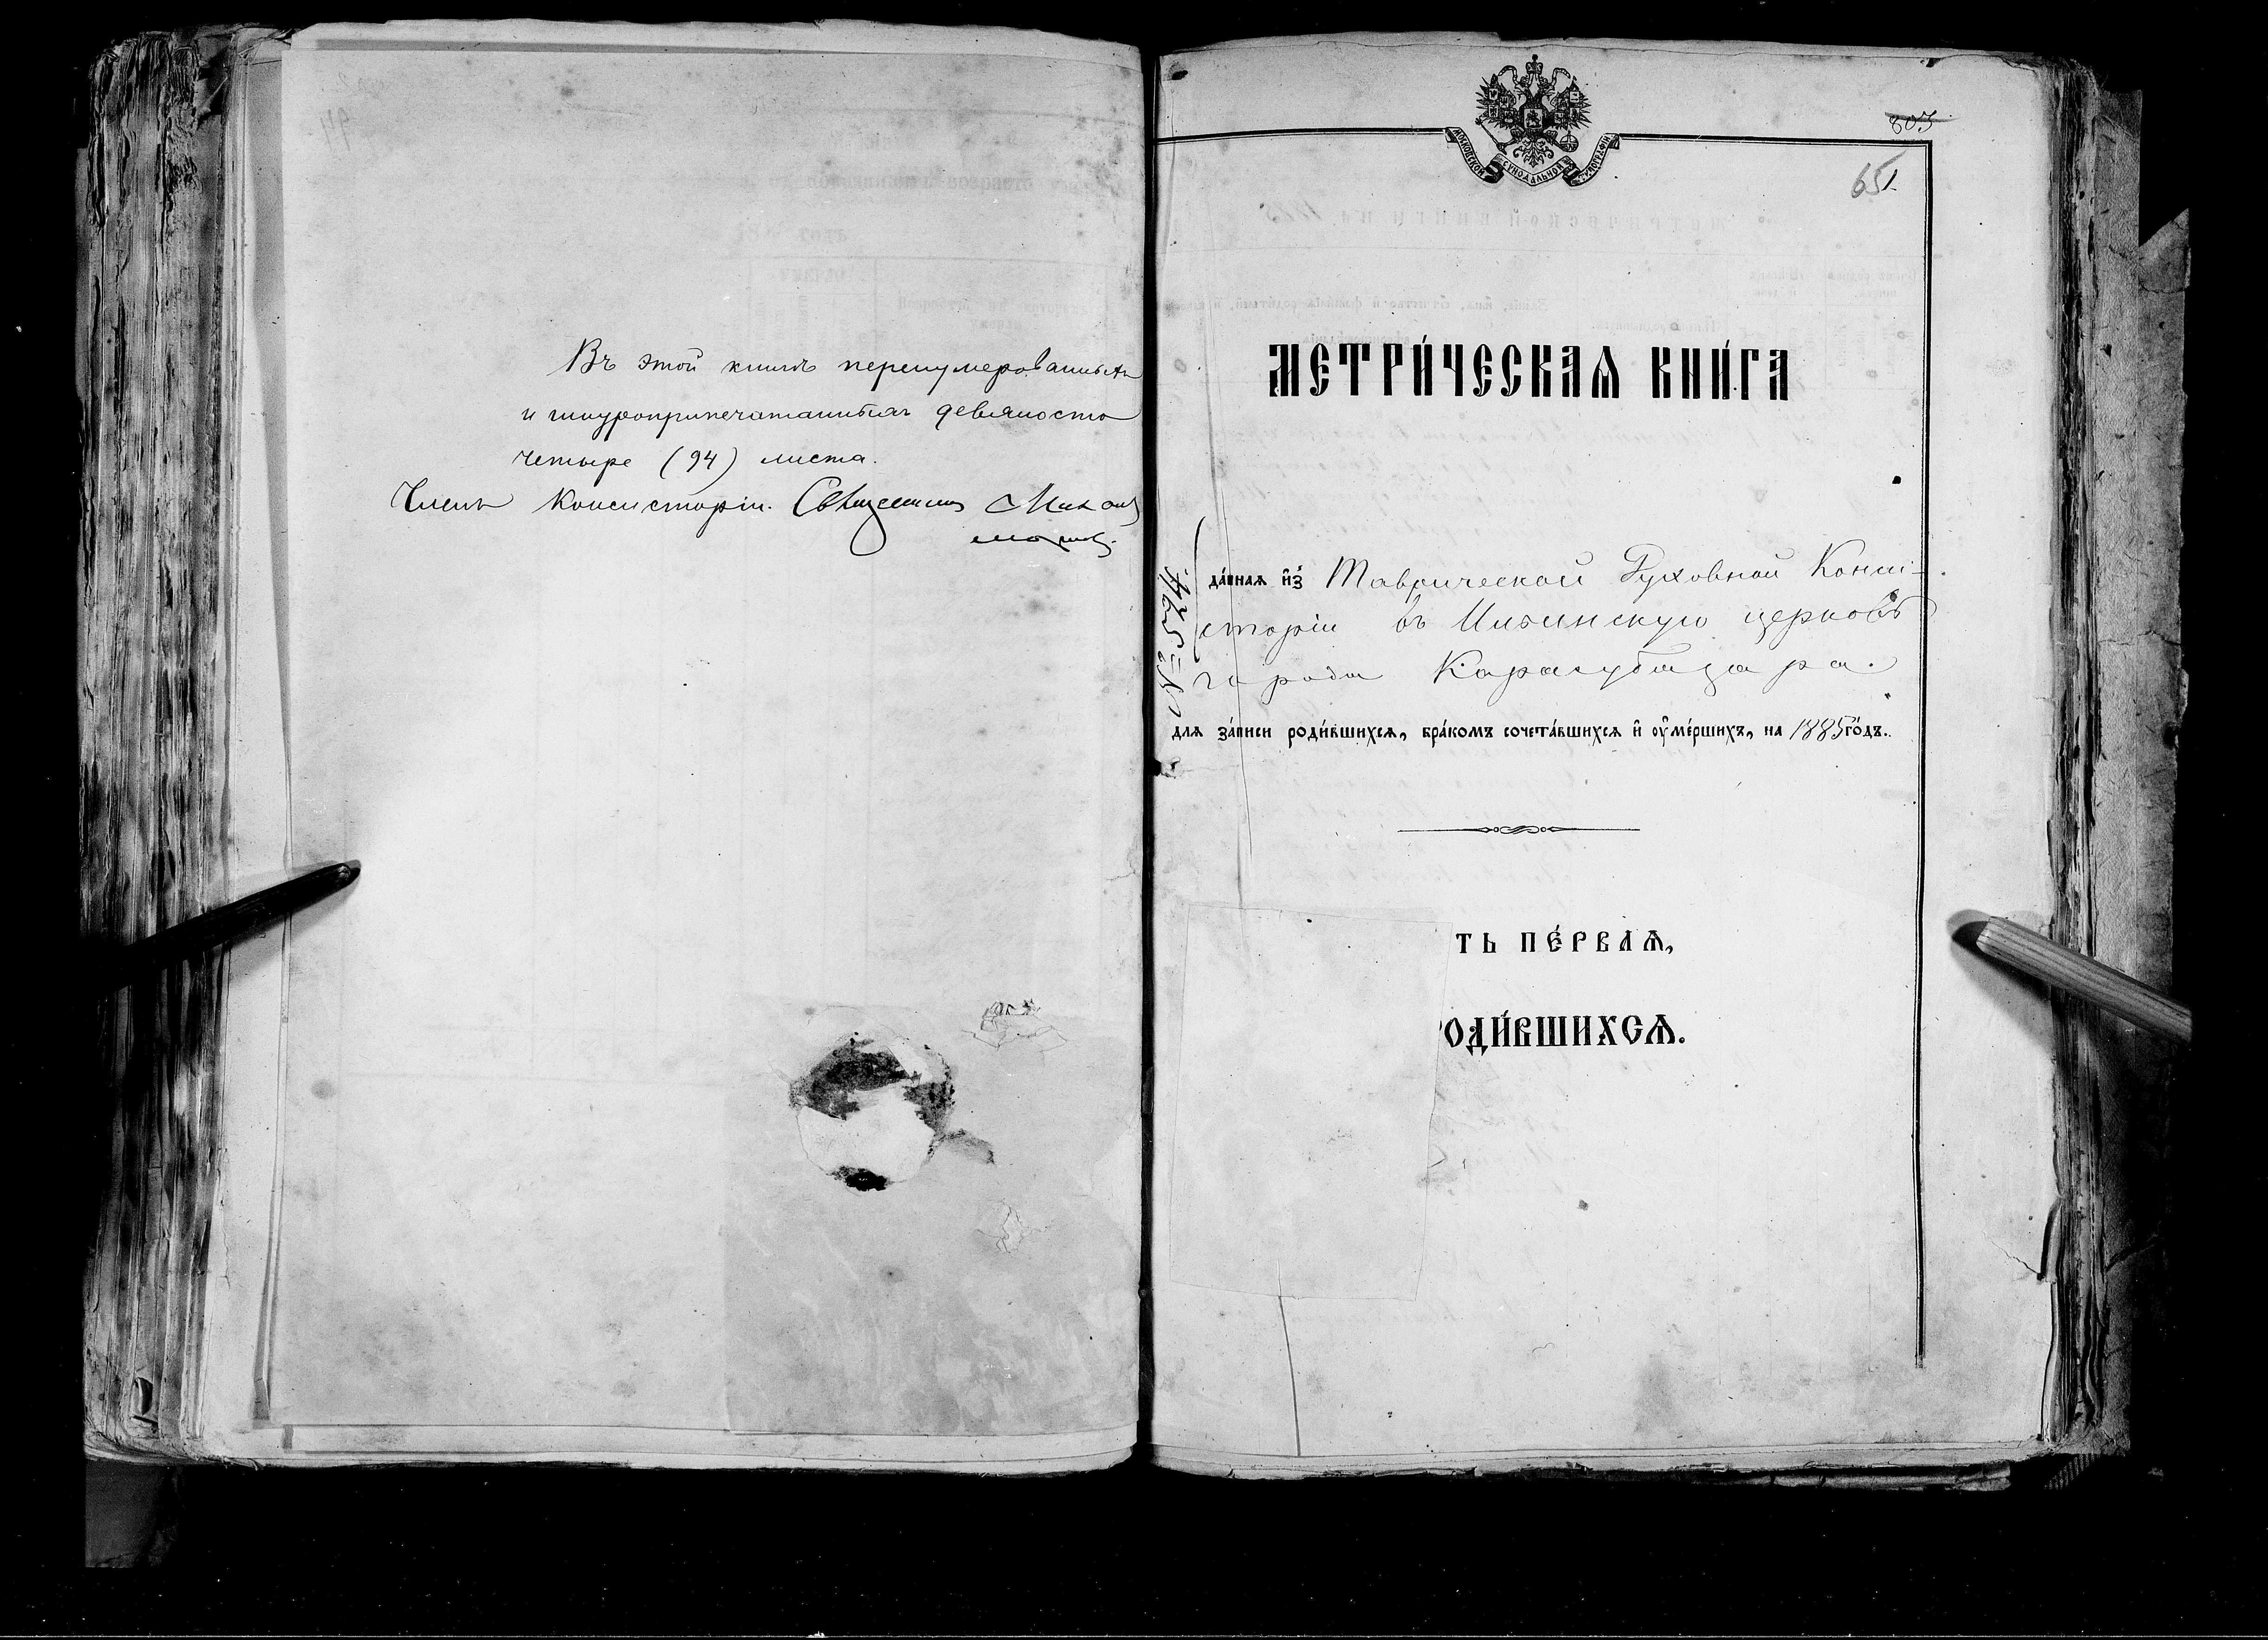 Въ этой книгѣ перенумерованныхъ
и шнуроприпечатанныхъ девяносто
четыре (94) листа.
Членъ Консисторіи. Священникъ Михаил
803
651
МОСКОВСКОЙ СѴНОДАЛЬНОЙ ТИПОГРАФІИ
МЕТРИ́ЧЕСКАѦ КНИ́ГА
да́нная и҆з̾ Таврической Духовной Конси-
сторіи въ Ильинскую церковь
города Карасубазара.
для за́писи роди́вшихся, бра́комъ сочета́вшихся и҆ ᲂу҆ме́ршихъ, на 1885 го́дъ.
ТЬ ПЕ́РВАѦ,
ОДИ́ВШИХСѦ.